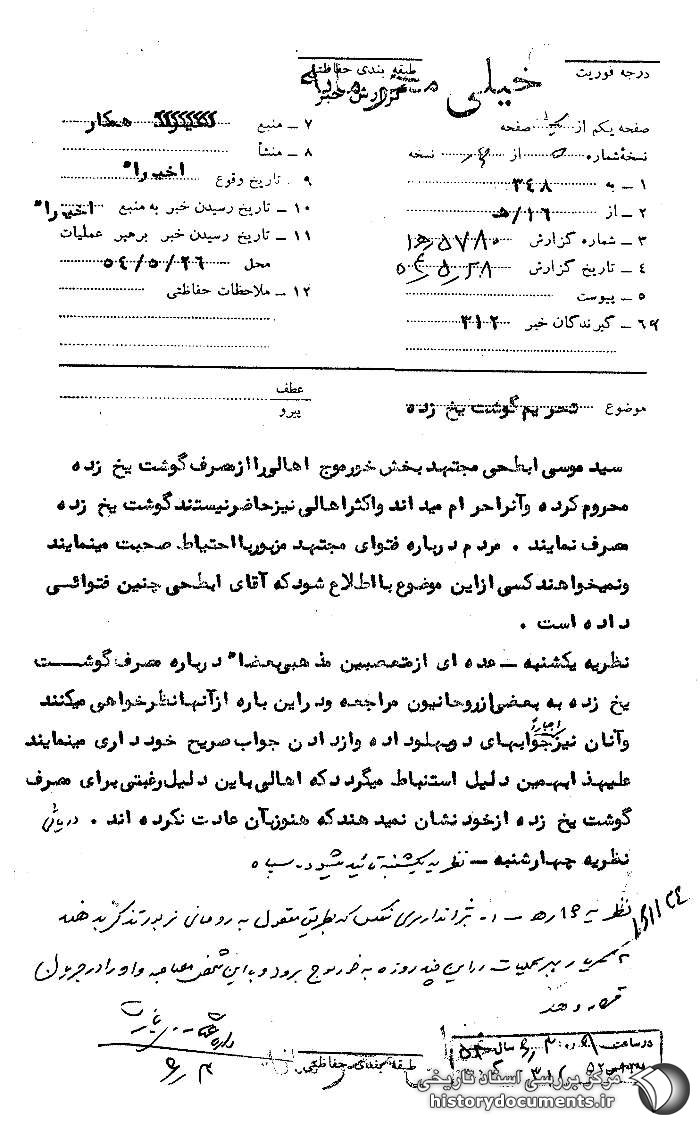 درجه فوریت
طبقه بندی حفاظتی
خیلی محرمانه
گزارش خبر
صفحه یکم از صفحه
نسخهٔ شماره از نسخه
۱ – به ۳۴۸
۲ – از ۵/۱۶
۳ – شماره گزارش
۴ – تاریخ گزارش
۵ – پیوست
۶ – گیرندگان خبر ۳۱۲
۷ – منبع همکار
۸ – منشأ
۹ – تاریخ وقوع اخیرا"
۱۰ – تاریخ رسیدن خبر به منبع اخیرا"
۱۱ – تاریخ رسیدن خبر برهبر عملیات
محل ۵۴/۵/۲۶
۱۲ – ملاحظات حفاظتی
موضوع تحریم گوشت یخ زده
عطف
پیرو
سید موسی ابطحی مجتهد بخش خورموج اهالی را از مصرف گوشت یخ زده
محروم کرده و آنرا حرام میداند و اکثر اهالی نیز حاضر نیستند گوشت یخ زده
مصرف نمایند . مردم درباره فتوای مجتهد مزبور با احتیاط صحبت مینمایند
و نمیخواهند کسی از این موضوع با اطلاع شود که آقای ابطحی چنین فتوائی
داده است .
نظریه یکشنبه – عده ای از متعصبین مذهبی بعضا" درباره مصرف گوشت
یخ زده به بعضی از روحانیون مراجعه و در این باره از آنها نظرخواهی میکنند
و آنان نیز جوابهای دوپهلو داده و از دادن جواب صریح خودداری مینمایند
علیهذا بهمین دلیل استنباط میگردد که اهالی باین دلیل رغبتی برای مصرف
گوشت یخ زده از خود نشان نمیدهند که هنوز بآن عادت نکرده اند . دریائی
نظریه چهارشنبه – نظریه یکشنبه تائید میشود.
نظریه ۱۶ ه – ۱-
رهبر عملیات در این چند روزه به خورموج برود و با این شخص مصاحبه و او را در جریان
قرار دهند
طبقه بندی حفاظتی
در ساعت روز سال
مرکز بررسی اسناد تاریخی
historydocuments.ir